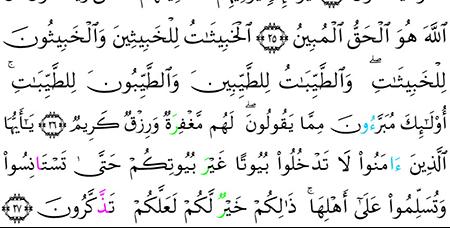 ٱللَّهَ هُوَ ٱلْحَقُّ ٱلْمُبِينُ ۝٢٥ ٱلْخَبِيثَٰتُ لِلْخَبِيثِينَ وَٱلْخَبِيثُونَ
لِلْخَبِيثَٰتِۖ وَٱلطَّيِّبَٰتُ لِلطَّيِّبِينَ وَٱلطَّيِّبُونَ لِلطَّيِّبَٰتِۚ
أُو۟لَٰٓئِكَ مُبَرَّءُونَ مِمَّا يَقُولُونَۖ لَهُم مَّغْفِرَةٌ وَرِزْقٌ كَرِيمٌ ۝٢٦ يَٰٓأَيُّهَا
ٱلَّذِينَ ءَامَنُوا۟ لَا تَدْخُلُوا۟ بُيُوتًا غَيْرَ بُيُوتِكُمْ حَتَّىٰ تَسْتَانِسُوا۟
وَتُسَلِّمُوا۟ عَلَىٰٓ أَهْلِهَاۚ ذَٰلِكُمْ خَيْرٌ لَّكُمْ لَعَلَّكُمْ تَذَّكَّرُونَ ۝٢٧